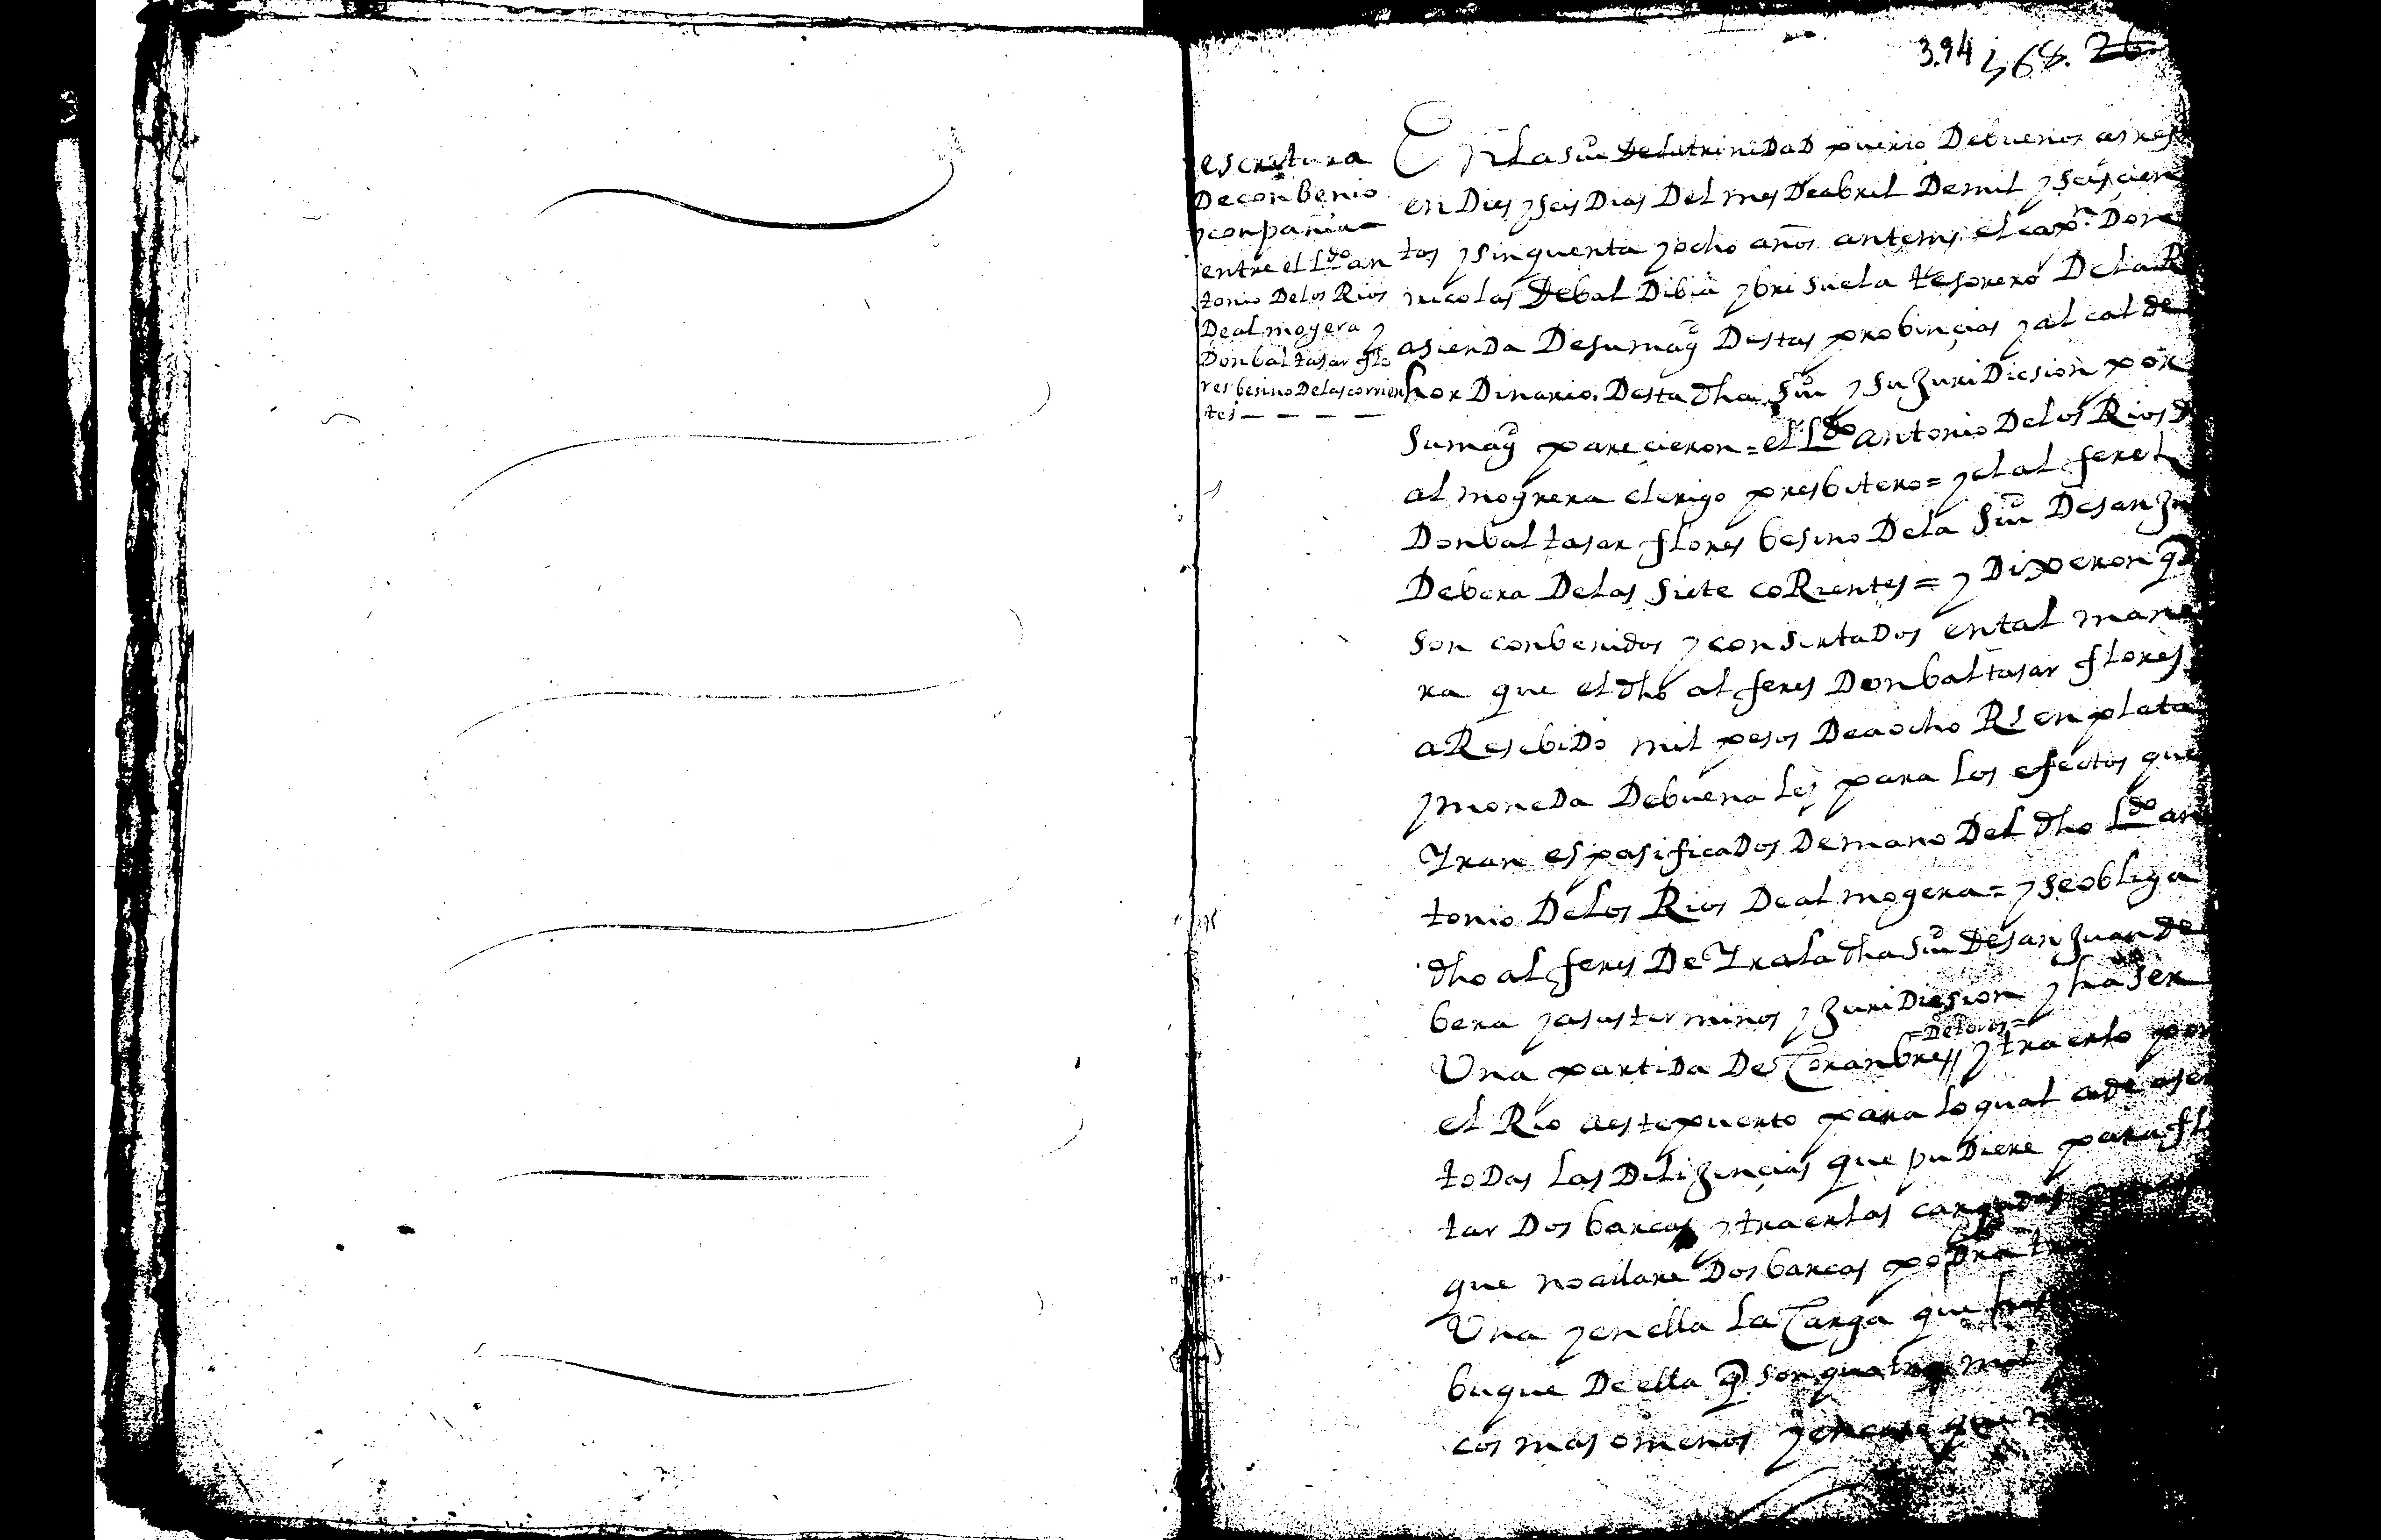 3.94 368. 26
escritura
De conbenio
y conpañia
entre el Ldo an
tonio Delos Rios
De almogera y
Don baltasar flo
res besino Delas corrien
tes
En La siu Dela trinidad puerto De buenos aires
en Dies y seis Dias Del mes De abril De mil y seiscien
tos y sinquenta y ocho años antemi el capn Don
nicolas De bal Dibia y brisuela tesorero De la R
asienda De su magd Destas probinçias y alcalde
hordinario Desta dha siu y su Juridicsion por
su magd parecieron = el Ldo antonio Delos Rios D
almogrera clerigo presbitero = y el alferes
Don baltasar flores besino De la siu De san Ju
De bera Delas siete coRientes = y Dixeron q
son conbenidos y consertados en tal mane
ra que el dho alferes Don baltasar flores
a Resebido mil pesos De a ocho Rs en plata
y moneda De buena ley para los efectos que
Yran espasificados De mano Del dho Ldo an
tonio Delos Rios De almogera = y se obliga
dho alferes De Yr a la dha siu De san Juan de
bera y a sus terminos y Juridicsion y haser
Una partida De Coranbres =De toros= y traerlo por
el Rio a este puerto para lo qual a de aser
todas las Dilijençias que pudiere para fle
tar Dos barcas y traerlas cargadas
que no allare Dos barcas podra
Una y en ella la Carga que
buque De ella q son quatro mil
cos mas o menos y en caso que n